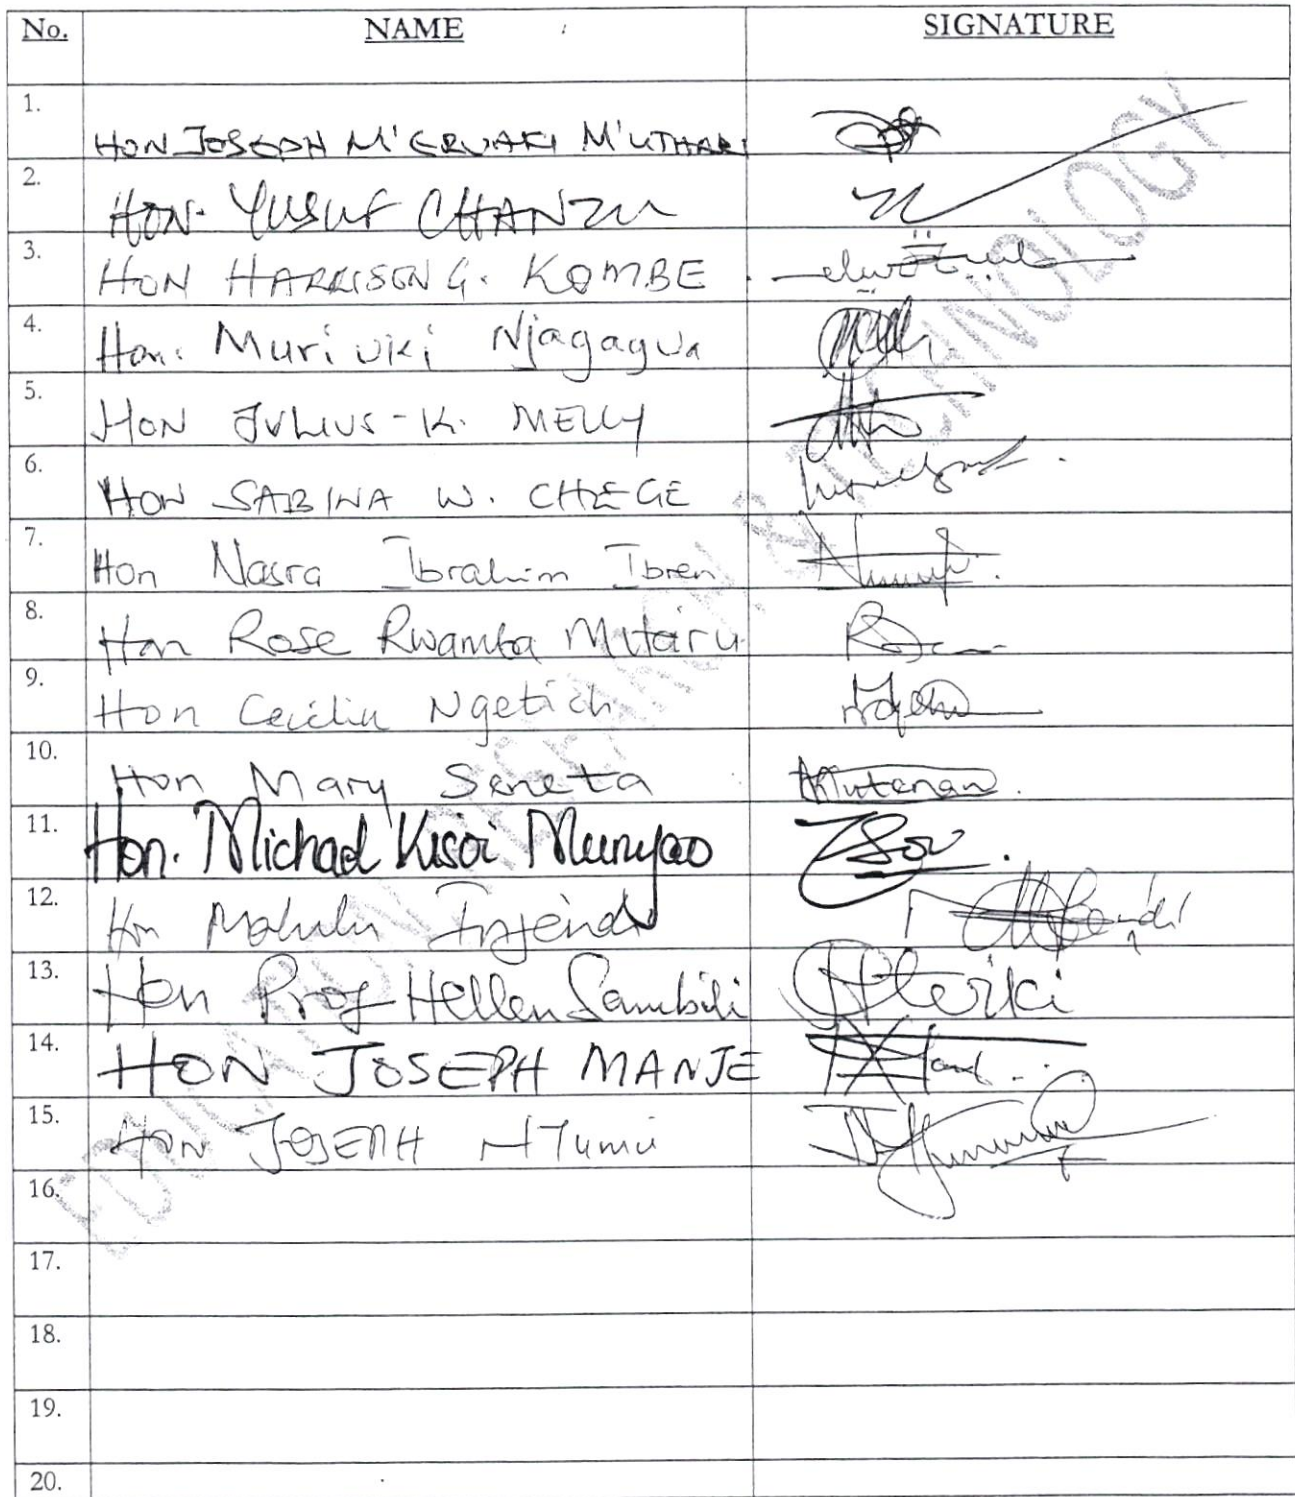 No. NAME SIGNATURE
1. HON JOSEPH M'ERUAKI M'UTHARI
2. HON. YUSUF CHANZU
3. HON HARRISON G. KOMBE
4. Hon. Muriuki Njagagua
5. HON JULIUS-K. MELLY
6. HON SABINA W. CHEGE
7. Hon Nasra Ibrahim Ibren
8. Hon Rose Rwamba Mitaru
9. Hon Cecilia Ngetich
10. Hon Mary Seneta
11. Hon. Michael Kisoi Munyao
12. Hn Malulu Injendi
13. Hon Prof Hellen Sambili
14. HON JOSEPH MANJE
15. HON JOSEPH NTumu
16.
17.
18.
19.
20.
& TECHNOLOGY